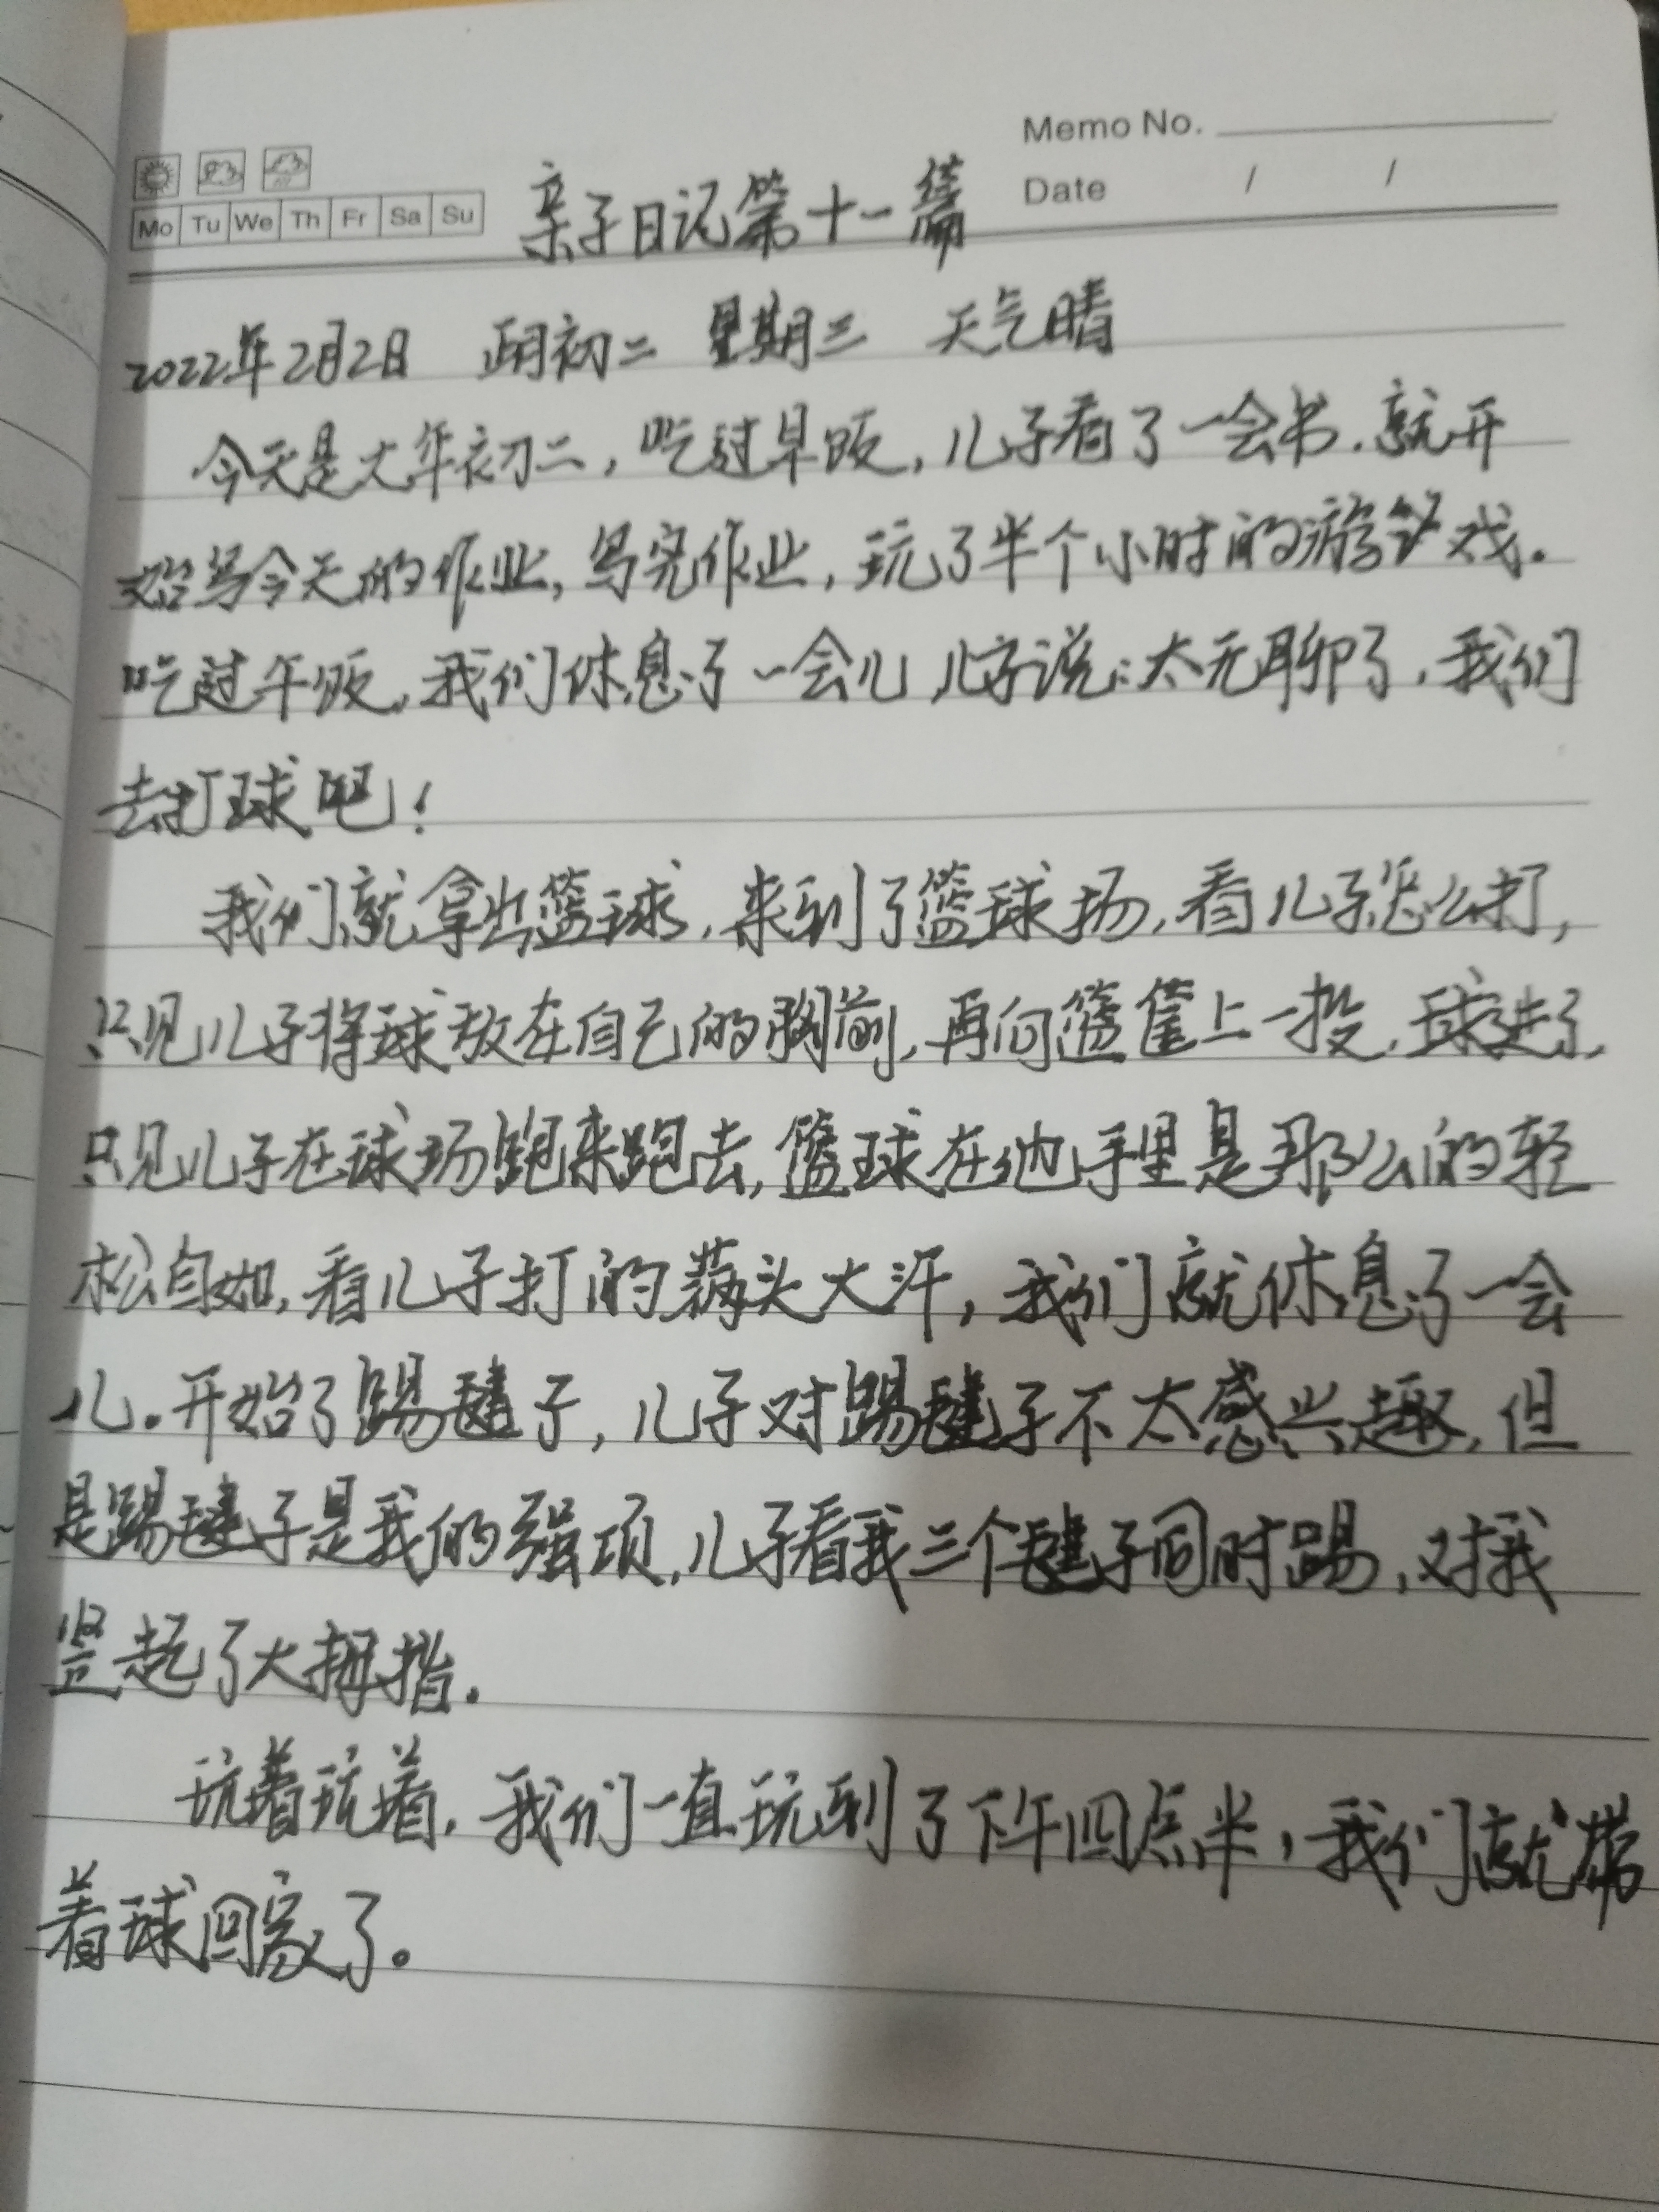 Memo No.
Date / /
Mo Tu We Th Fr Sa Su
亲子日记第十一篇
2022年2月2日 正月初二 星期三 天气晴
今天是大年初二，吃过早饭，儿子看了一会书.就开
始写今天的作业,写完作业，玩了半个小时的游戏。
吃过午饭,我们休息了一会儿,儿子说:太无聊了,我们
去打球吧！
我们就拿出篮球,来到了篮球场,看儿子怎么打,
只见儿子将球放在自己的胸前,再向篮筐上一投,球进了,
只见儿子在球场跑来跑去,篮球在他手里是那么的轻
松自如,看儿子打的满头大汗,我们就休息了一会
儿。开始了踢毽子,儿子对踢毽子不太感兴趣,但
是踢毽子是我的强项,儿子看我三个毽子同时踢,对我
竖起了大拇指.
玩着玩着,我们一直玩到了下午四点半,我们就带
着球回家了。